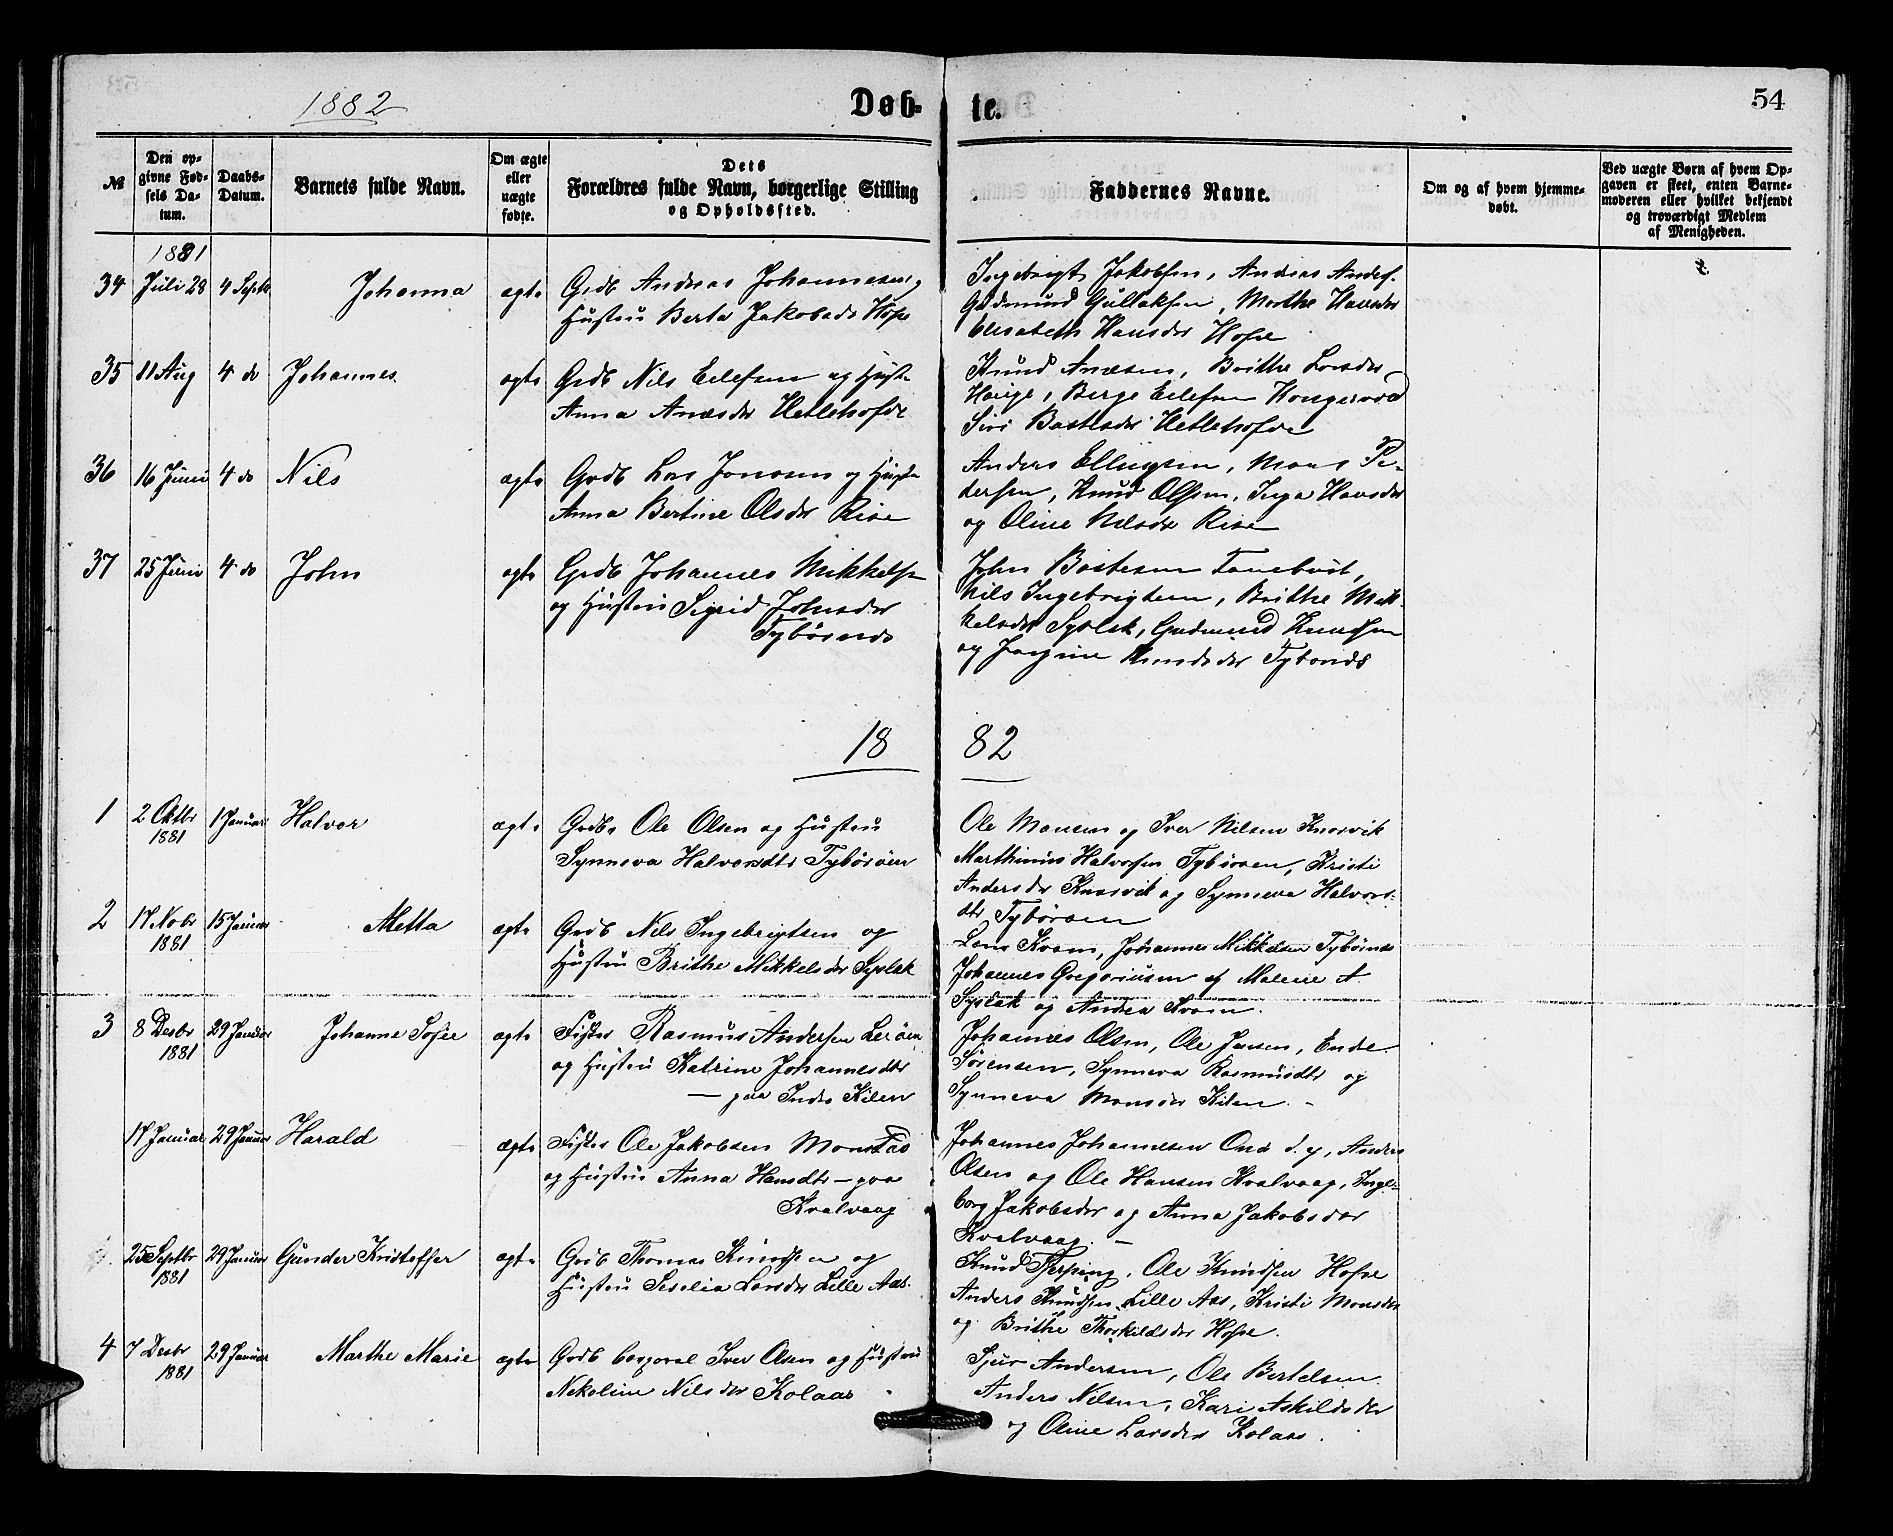 1882
Døb-
te.
54
№
Den op-
givne Fød-
sels Da-
tum.
Daabs-
Datum.
Barnets fulde Navn.
Om ægte
eller
uægte
fødte.
Dets
Forældres fulde Navn, borgerlige Stilling
og Opholdssted.
Faddernes Navne.
Om og af hvem hjemme-
døbt.
Ved uægte Børn af hvem Op-
gaven er skeet, enten Barne-
moderen eller hvilket bekjendt
og troværdigt Medlem
af Menigheden.
1881
34 Juli 28 4 Septb Johanna ægte Grdb Andreas Johannesen,
Hustru Berta Jakobsdr Hope
Ingebrigt Jakobsen, Andreas Anders.
Gudmund Gullaksen, Marthe Hansdr
Elisabeth Hansdr Hope
35 11 Aug 4 do Johannes ægte Grdb Nils Eilefsen og Hustr
Anna Anæsdr Hetlehofde
Knud Anæsen, Brithe Larsdr
Hauge, Berge Eilefsen
Siri Hetlehofde
36 16 Juni 4 do Nils ægte Grdb Lars Jonasen og Hustr
Anna Bertine Olsdr Rise
Anders Ellingsen, Mons Pe-
dersen, Knud Olsen, Inga Hansdr
og Oline Nelsdr Rise
37 25 Juni 4 do John ægte Grdb Johannes Mikkelsen
og Hustru Sigrid Johnsdr
Tybørnds
John Bastesen
Nils Ingebrigtsen, Brithe Mik-
kelsdr Syslak, Gudmund Knudsen
og Knudsdr Tybonds
18 82
1 2 Oktbr 1 Januar Halvor ægte Grdbr Ole Olsen og Hustru
1881
Synneva Halvorsdtr Tybørøen
Ole Monsen og Iver Nilsen Knarvik
Marthinus Halvorsen Tybørøen, Kristi
Andersdr Knarvik og Synneva Halvors-
dtr Tybørøen
2 17 Nobr 15 Januar Metta ægte Grdb Nils Ingebrigtsen og
1881
Hustru Brithe Mikkelsdr Syslak
Lars Kvam, Johannes Mikkelsen Tybørnes
Johannes Gregoriusen og Malene A.
Syslak og Andrea Kvam.
3 8 Desbr 29 Januar Johanne Sofie ægte Fisker Rasmus Andersen Lerøen
1881
og Hustru Katrine Johannesdtr
— paa Indre Kilen
Johannes Olsen, Ole Jansen, Endre
Sørensen, Synneva Rasmusdtr og
Synneva Monsdr Kilen. -
17 Januar 29 Januar Harald ægte Fisker Ole Jakobsen Monstas
og Hustru Anna Hansdtr — paa
Kvalvaag
Johannes Johannesen Ona d. y, Anders
Olsen og Ole Hansen Kvalvaag, Inge-
borg Jakobsdr og Anna Jakobsdtr
Kvalvaag. —
25 Septbr 29 Januar Gunder Kristoffer ægte Grdb Thomas Knudsen og
1881
Hustru Seselia Larsdr Lille Aas.
Knud Tjerping, Ole Knudsen Hope
Anders Knudsen Lille Aas, Kristi Monsdr
og Brithe Thorkildsdr Hope.
4 7 Desbr 29 Januar Marthe Marie ægte Grdb Corporal Iver Olsen og Hustru
1881
Nekoline Nilsdr Kolaas
Sjur Andersen, Ole Bertelsen
Anders Nelsen, Kari Askildsdr
og Oline Larsdr Kolaas.